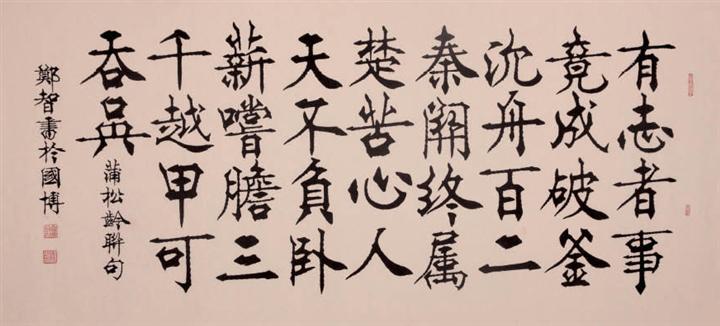 有志者事
竟成破釜
沉舟百二
秦關终属
楚苦心人
天不負卧
薪嚐膽三
千越甲可
吞吳
蒲松齡聯句
鄭智書於國博